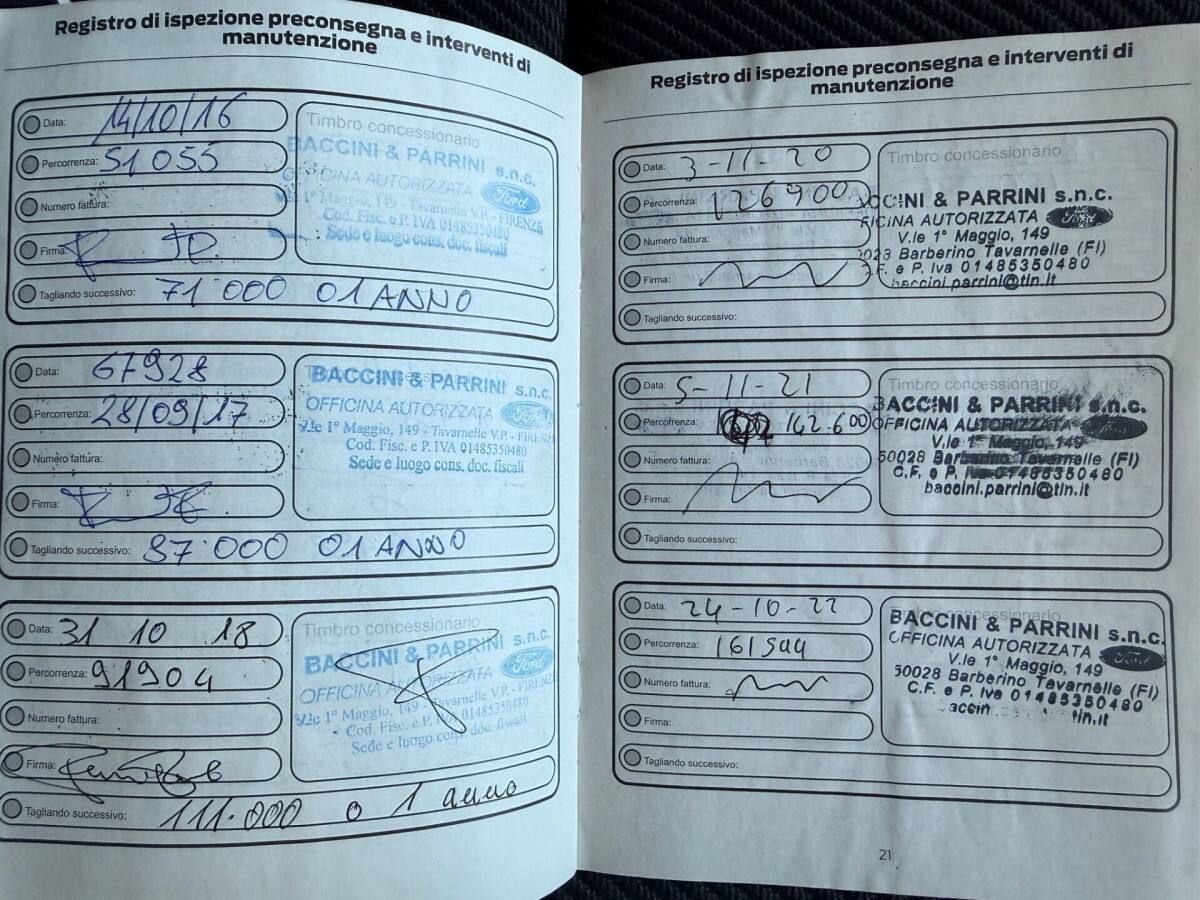 Registro di ispezione preconsegna e interventi di
manutenzione
Data: 14/10/16
Percorrenza: 51055
Numero fattura:
Firma:
Tagliando successivo: 71.000 O 1 ANNO
Timbro concessionario
BACCINI & PARRINI s.n.c.
OFFICINA AUTORIZZATA Ford
V.le 1° Maggio, 149 - Tavarnelle V.P. - FIRENZE
Cod. Fisc. e P. IVA 01485350480
Sede e luogo cons. doc. fiscali
Data: 67928
Percorrenza: 28/09/17
Numero fattura:
Firma:
Tagliando successivo: 87.000 O 1 ANNO
BACCINI & PARRINI s.n.c.
OFFICINA AUTORIZZATA Ford
V.le 1° Maggio, 149 - Tavarnelle V.P. - FIRENZE
Cod. Fisc. e P. IVA 01485350480
Sede e luogo cons. doc. fiscali
Data: 31 10 18
Percorrenza: 91904
Numero fattura:
Firma:
Tagliando successivo: 111.000 o 1 anno
Timbro concessionario
BACCINI & PARRINI s.n.c.
OFFICINA AUTORIZZATA Ford
V.le 1° Maggio, 149 - Tavarnelle V.P. - FIRENZE
Cod. Fisc. e P. IVA 01485350480
Sede e luogo cons. doc. fiscali
Registro di ispezione preconsegna e interventi di
manutenzione
Data: 3-11-20
Percorrenza: 126900
Numero fattura:
Firma:
Tagliando successivo:
Timbro concessionario
BACCINI & PARRINI s.n.c.
OFFICINA AUTORIZZATA Ford
V.le 1° Maggio, 149
50028 Barberino Tavarnelle (FI)
C.F. e P. Iva 01485350480
baccini.parrini@tin.it
Data: 5-11-21
Percorrenza: 142.600
Numero fattura:
Firma:
Tagliando successivo:
Timbro concessionario
BACCINI & PARRINI s.n.c.
OFFICINA AUTORIZZATA
V.le 1° Maggio, 149
50028 Barberino Tavarnelle (FI)
C.F. e P. Iva 01485350480
baccini.parrini@tin.it
Data: 24-10-22
Percorrenza: 161944
Numero fattura:
Firma:
Tagliando successivo:
Timbro concessionario
BACCINI & PARRINI s.n.c.
OFFICINA AUTORIZZATA Ford
V.le 1° Maggio, 149
50028 Barberino Tavarnelle (FI)
C.F. e P. Iva 01485350480
accin tin.it
21